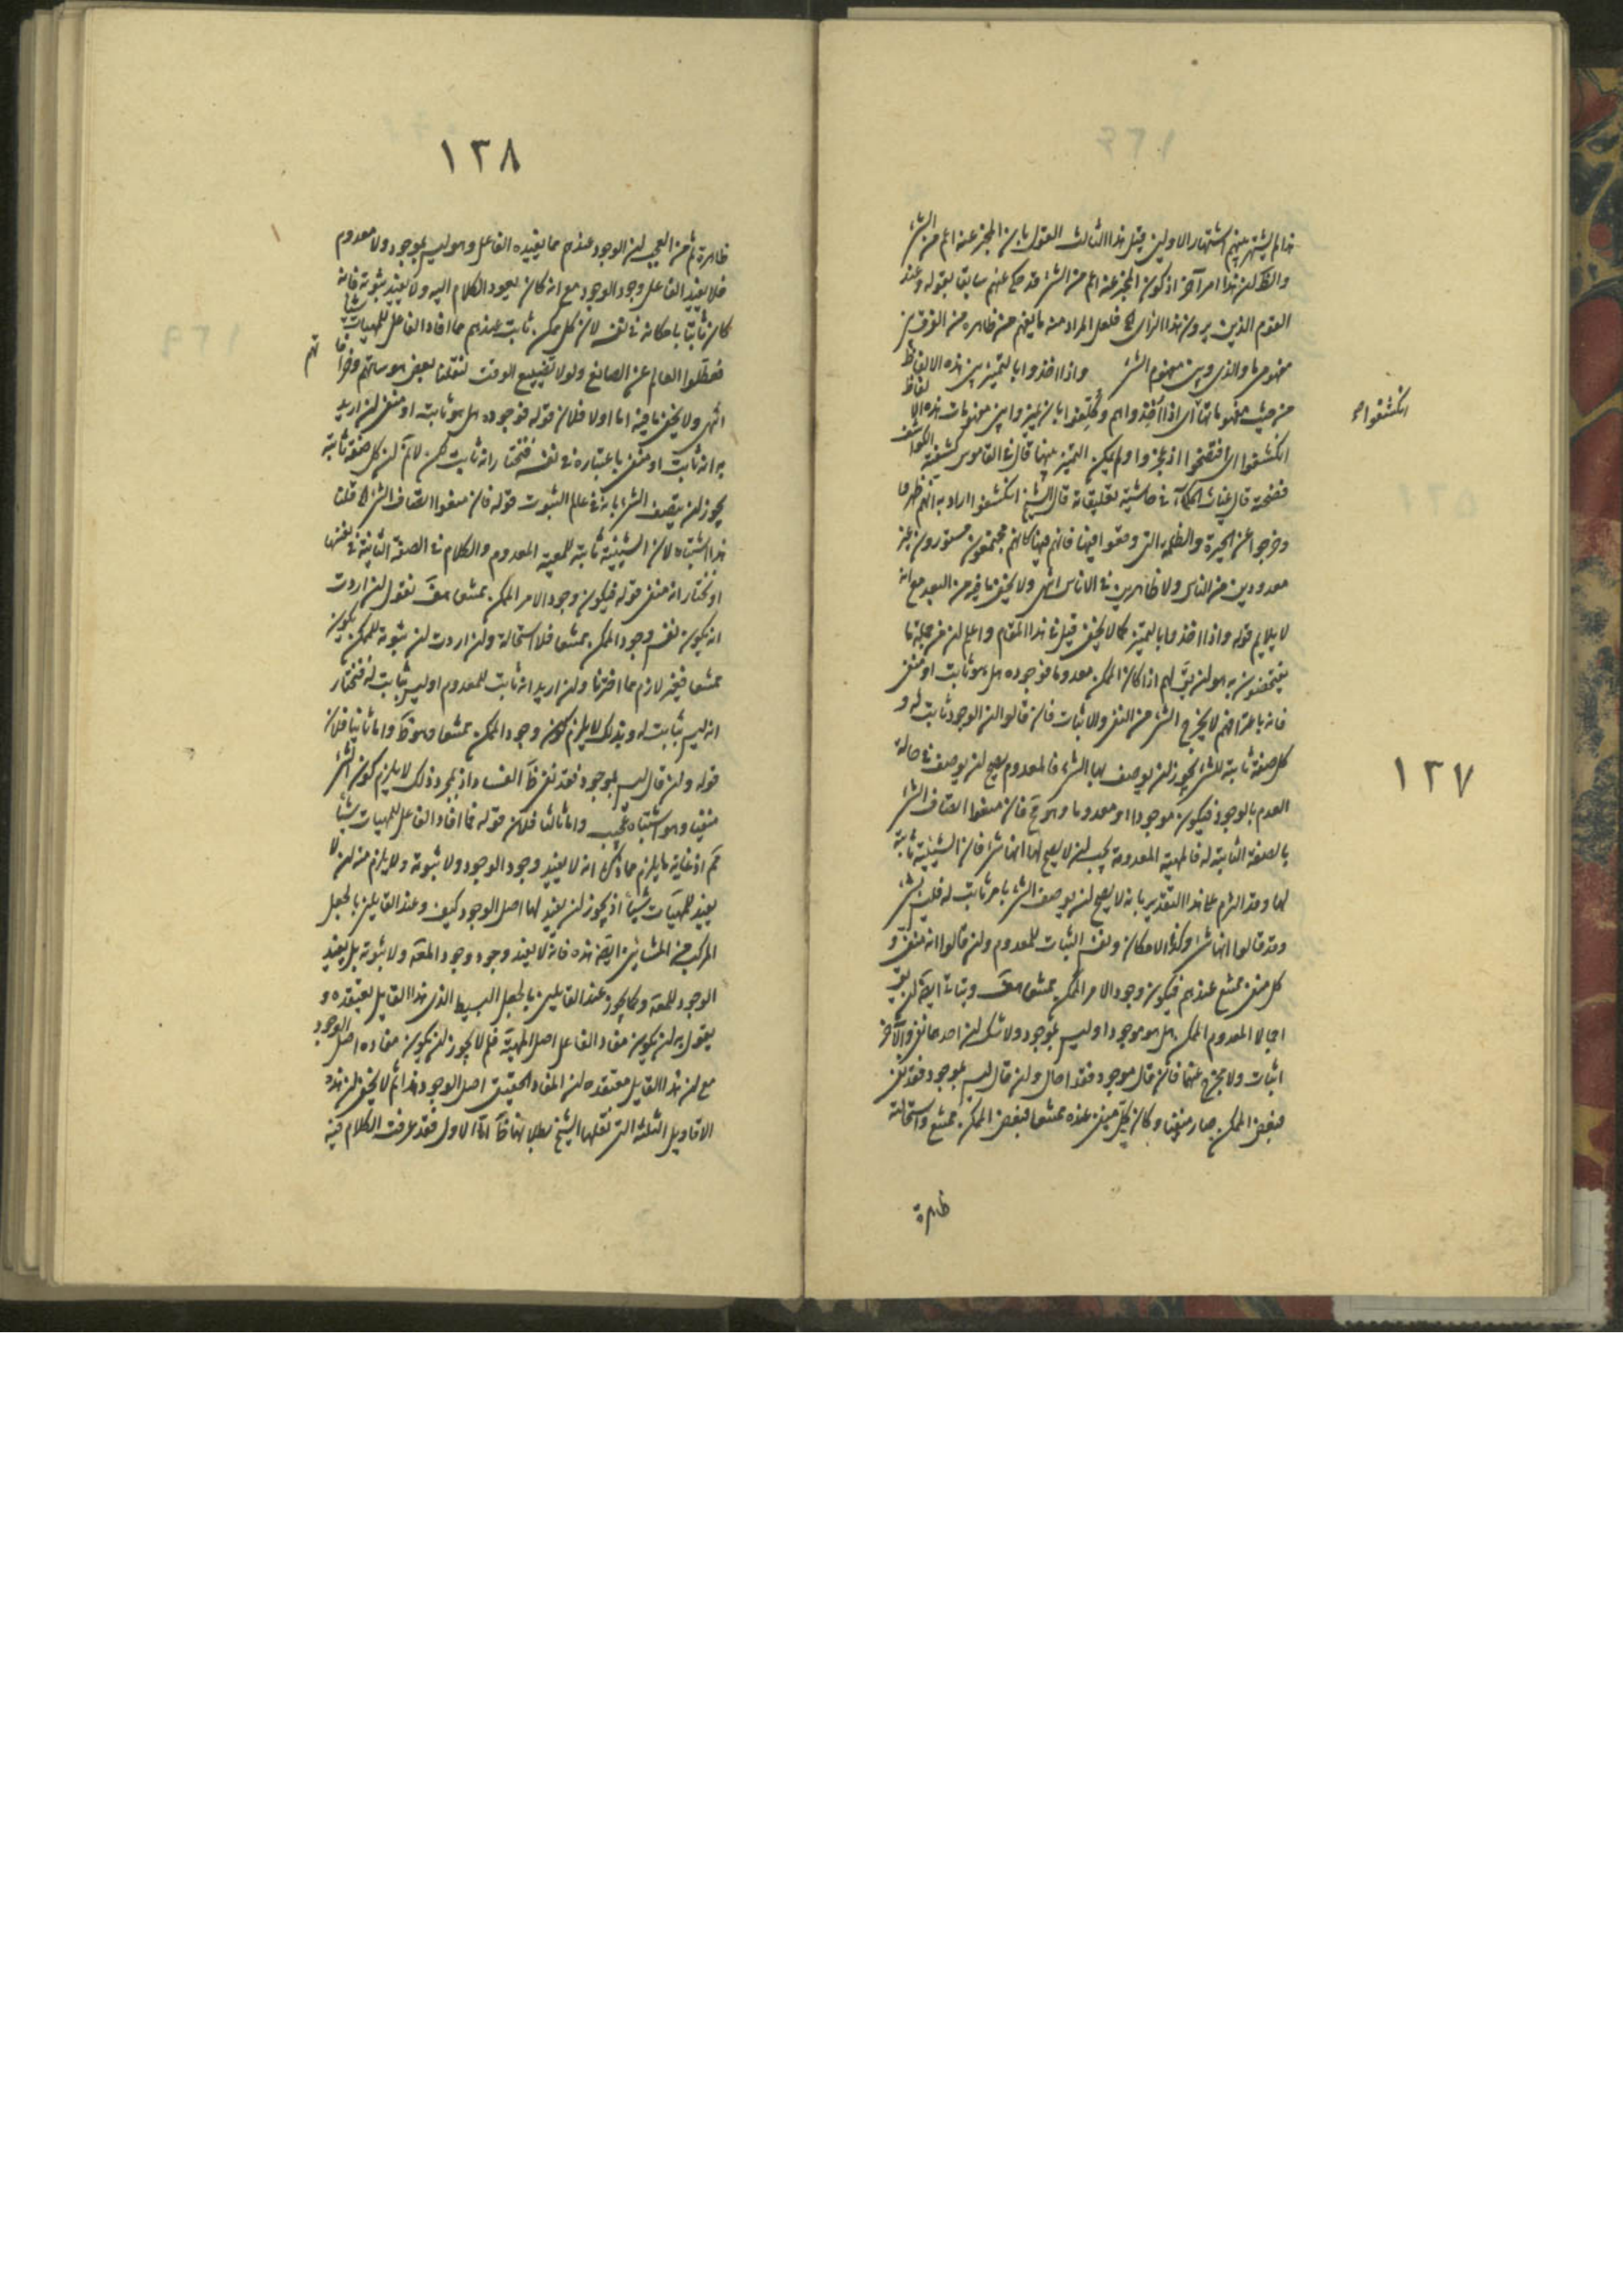 هذا لم يشتهر بينهم اشتهار الاولين قيل هذا الثالث القول بان المخبر عنه اعم من الشئ
والظ ان هذا امر آخر اذ كون المخبر عنه اعم من الشئ قد حكى عنهم سابقا بقوله وعند
القوم الذين يرون هذا الراى فلعل المراد منه ما يفهم من ظاهره من الفرق بين
مفهوم ما والذى وبين مفهوم الشئ واذا اخذوا بالتميز بين هذه الالفاظ
من حيث مفهوماتها اى اذا اخذوا هم وكلفوا بان يميزوا بين مفهومات هذه الالفاظ
انكشفوا اى افتضحوا اذ عجزوا ولم يمكن التميز بينها قال فى القاموس كشفته الكواشف
انكشفوا
فضحته قال غياث الحكماء فى حاشيته تعليقاته قال الشيخ انكشفوا اراد به انهم ظهروا
وخرجوا عن الحيرة والظلمة التى وقعوا فيها فانهم فيها كانهم مجتمعون مستورون غير
معدودين من الناس ولا ظاهرين فى الاناس انتهى ولا يخفى ما فيه من البعد مع انه
لا يلايم قوله واذا اخذوا بالتميز كما لا يخفى قيل فى هذا المقام واعلم ان من جملة ما
يفتضحون به هو ان يق لهم اذا كان الممكن معدوما فوجوده هل هو ثابت او منفى
فانه باعترافهم لا يخرج الشئ من النفى والاثبات فان قالوا ان الوجود ثابت له و
كل صفة ثابتة للشئ يجوز ان يوصف بها الشئ فالمعدوم يصح ان يوصف فى حالة
١٢٧
العدم بالوجود فيكون موجودا ومعدوما وهو مح فان منعوا اتصاف الشئ
بالصفة الثابتة له فالمهية المعدومة يجب ان لا يصح لها انها شئ فان الشيئية ثابتة
لها وقد التزم على هذا التقدير بانه لا يصح ان يوصف الشئ بامر ثابت له فليس بشئ
وقد قالوا انها شئ وكذا الامكان ونفس الثبات للمعدوم وان قالوا انه منفى و
كل منفى ممتنع عندهم فيكون وجود الامر الممكن ممتنعا هف ويتاتى ايضا ان يق
اجمالا المعدوم الممكن هل هو موجود او ليس بموجود ولا شك ان احدهما نفى والآخر
اثبات ولا مخرج عنهما فان قال موجود فقد احال وان قال ليس بموجود فقد نفى
فبعض الممكن صار منفيا وكان كل منفى عنده ممتنعا فبعض الممكن ممتنع واستحالته
ظاهرة
١٢٨
ظاهرة ثم من العجب ان الوجود عندهم مما يفيده الفاعل وهو ليس بموجود ولا معدوم
فلا يفيد الفاعل وجود الوجود مع انه كان يعود الكلام اليه ولا يفيد ثبوته فانه
كان ثابتا بامكانه فى نفسه لان كل ممكن ثابت عندهم فما افاد الفاعل للمهيات شيئا
فعطلوا العالم عن الصانع ولولا تضييع الوقت لنقلنا بعض هوساتهم وخرافاتهم
انتهى ولا يخفى ما فيه اما اولا فلان قوله فوجوده هل هو ثابت او منفى ان اريد
به انه ثابت او منفى باعتباره فى نفسه فنختار انه ثابت لكن لانم ان كل صفة ثابتة
يجوز ان يتصف الشئ بانه فى عالم الثبوت قوله فان منعوا اتصاف الشئ قلنا
هذا اشتباه لان الشيئية ثابتة للمهية المعدوم والكلام فى الصفة الثابتة فى نفسها
او نختار انه منفى قوله فيكون وجود الامر الممكن ممتنعا هف نقول ان اردت
انه يكون نفس وجود الممكن ممتنعا فلا استحالة وان اردت ان ثبوته للممكن يكون
ممتنعا فغير لازم مما اخترنا وان اريد انه ثابت للمعدوم او ليس بثابت له فنختار
انه ليس بثابت له وبذلك لا يلزم كون وجود الممكن ممتنعا وهو ظ واما ثانيا فلان
قوله وان قال ليس بموجود فقد نفى ظ الفساد اذ بمجرد ذلك لا يلزم كون الشئ
منفيا وهو اشتباه عجيب واما ثالثا فلان قوله فما افاد الفاعل للمهيات شيئا
مم اذ غاية ما يلزم مما ذكر انه لا يفيد وجود الوجود ولا ثبوته ولا يلزم منه ان لا
يفيد للمهيات شيئا اذ يجوز ان يفيد لها اصل الوجود كيف وعند القايلين بالجعل
المركب من المشائين ايضا هذه فانه لا يفيد وجود وجود المهية ولا ثبوته بل يفيد
الوجود للمهية وكما يجوز عند القايلين بالجعل البسيط الذى هذا القايل يعتقده و
يقول به ان يكون مفاد الفاعل اصل المهية فلم لا يجوز ان يكون مفاده اصل الوجود
مع ان هذا القايل معتقده ان المفاد الحقيقى اصل الوجود هذا ثم لا يخفى ان هذه
الاقاويل الثلثة التى نقلها الشيخ بطلانها ظ اما الاول فقد عرفت الكلام فيه